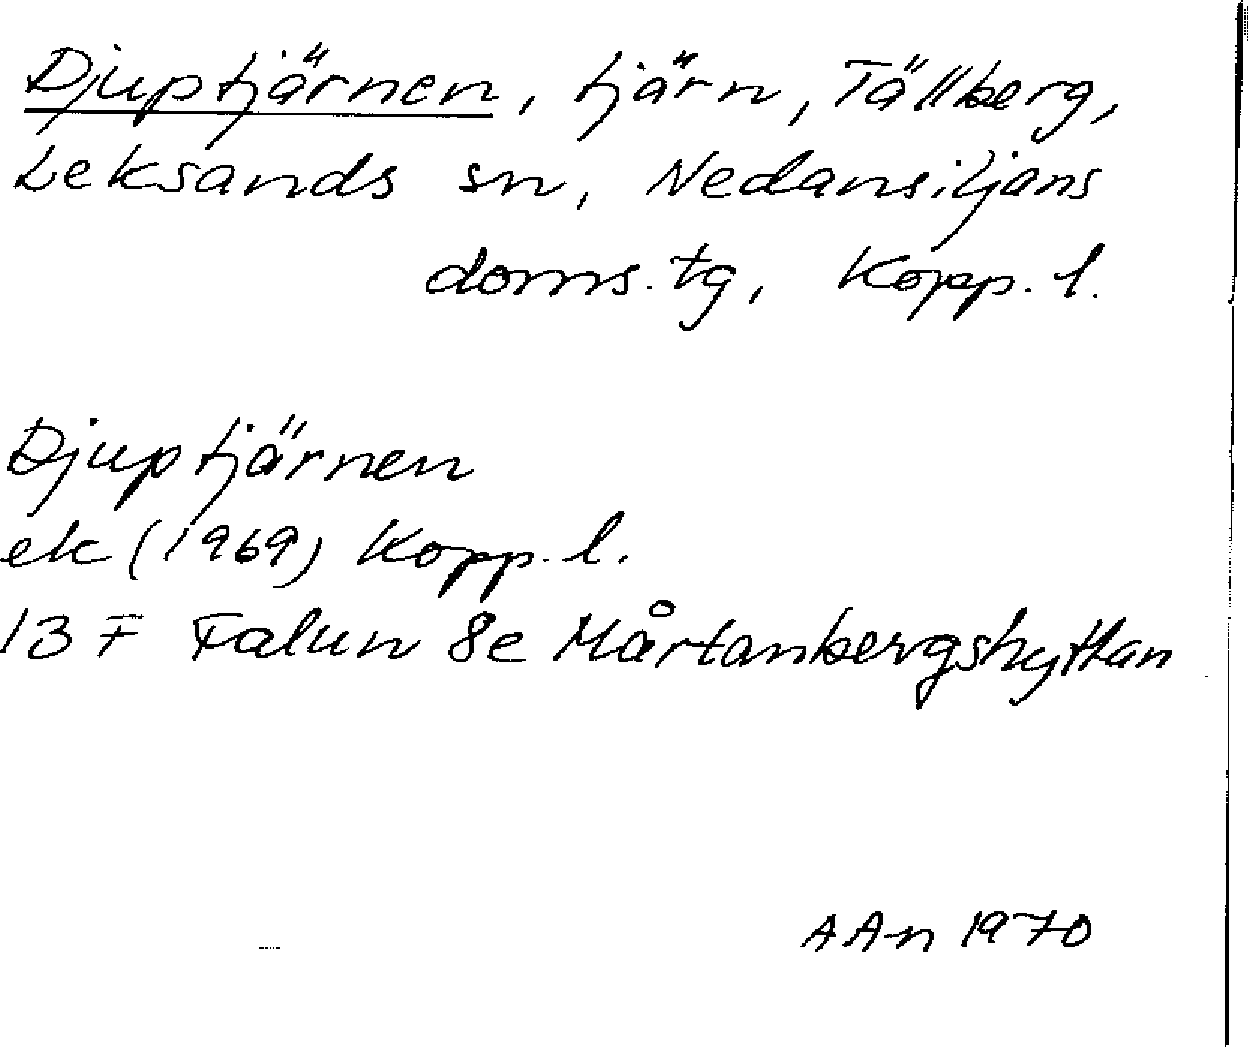 Djuptjärnen, tjärn, Tällberg,
Leksands sn, Nedansiljans
doms.tg, Kopp. l.
Djuptjärnen
ek (1969) Kopp. l.
13 F Falun 8e Mårtanbergshyttan
AAn 1970